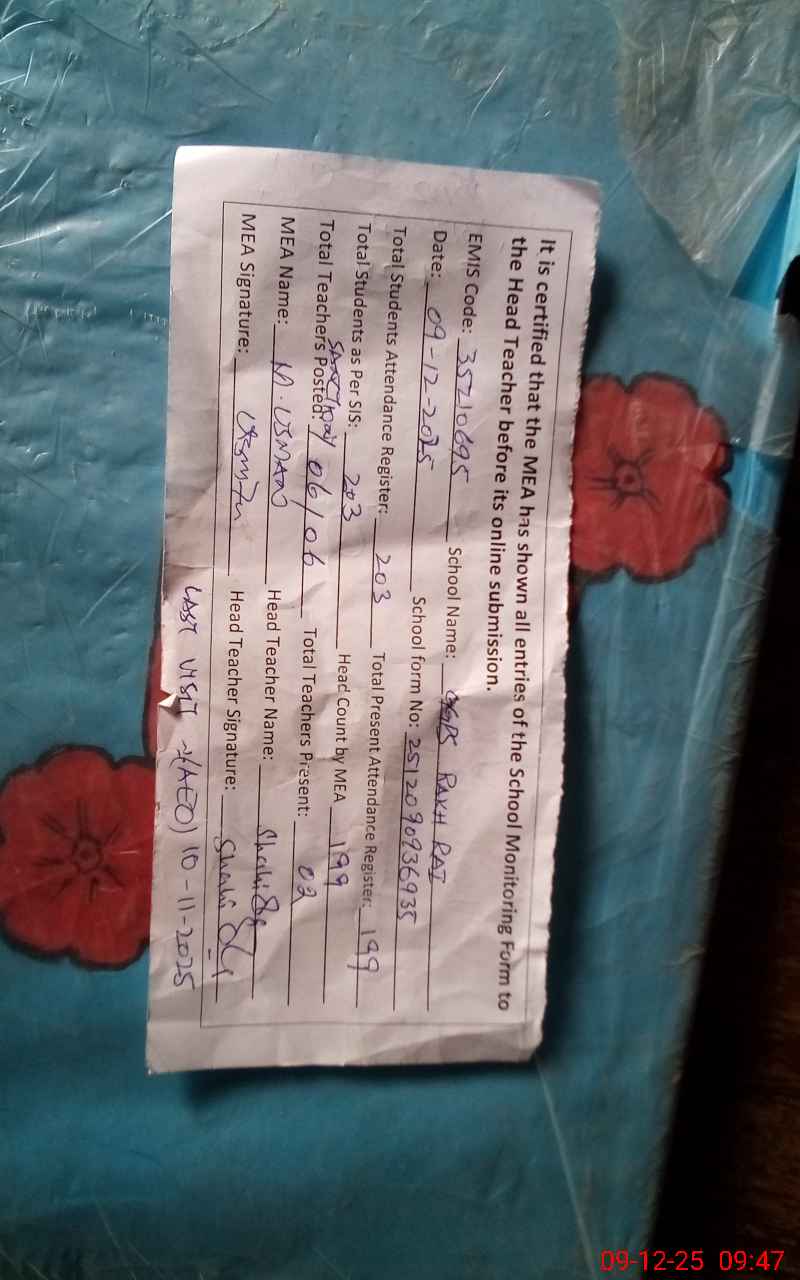 It is certified that the MEA has shown all entries of the School Monitoring Form to
the Head Teacher before its online submission.
EMIS Code: 35210695 School Name: GGPS RAKH RAI
Date: 09-12-2025 School form No: 2512090936935
Total Students Attendance Register: 203 Total Present Attendance Register: 199
Total Students as Per SIS: 203 Head Count by MEA 199
Total Teachers Posted: 06/06 Total Teachers Present: 02
MEA Name: M. USMAN Head Teacher Name:
MEA Signature: Head Teacher Signature:
LAST VISIT (AEO) 10-11-2025
09-12-25 09:47